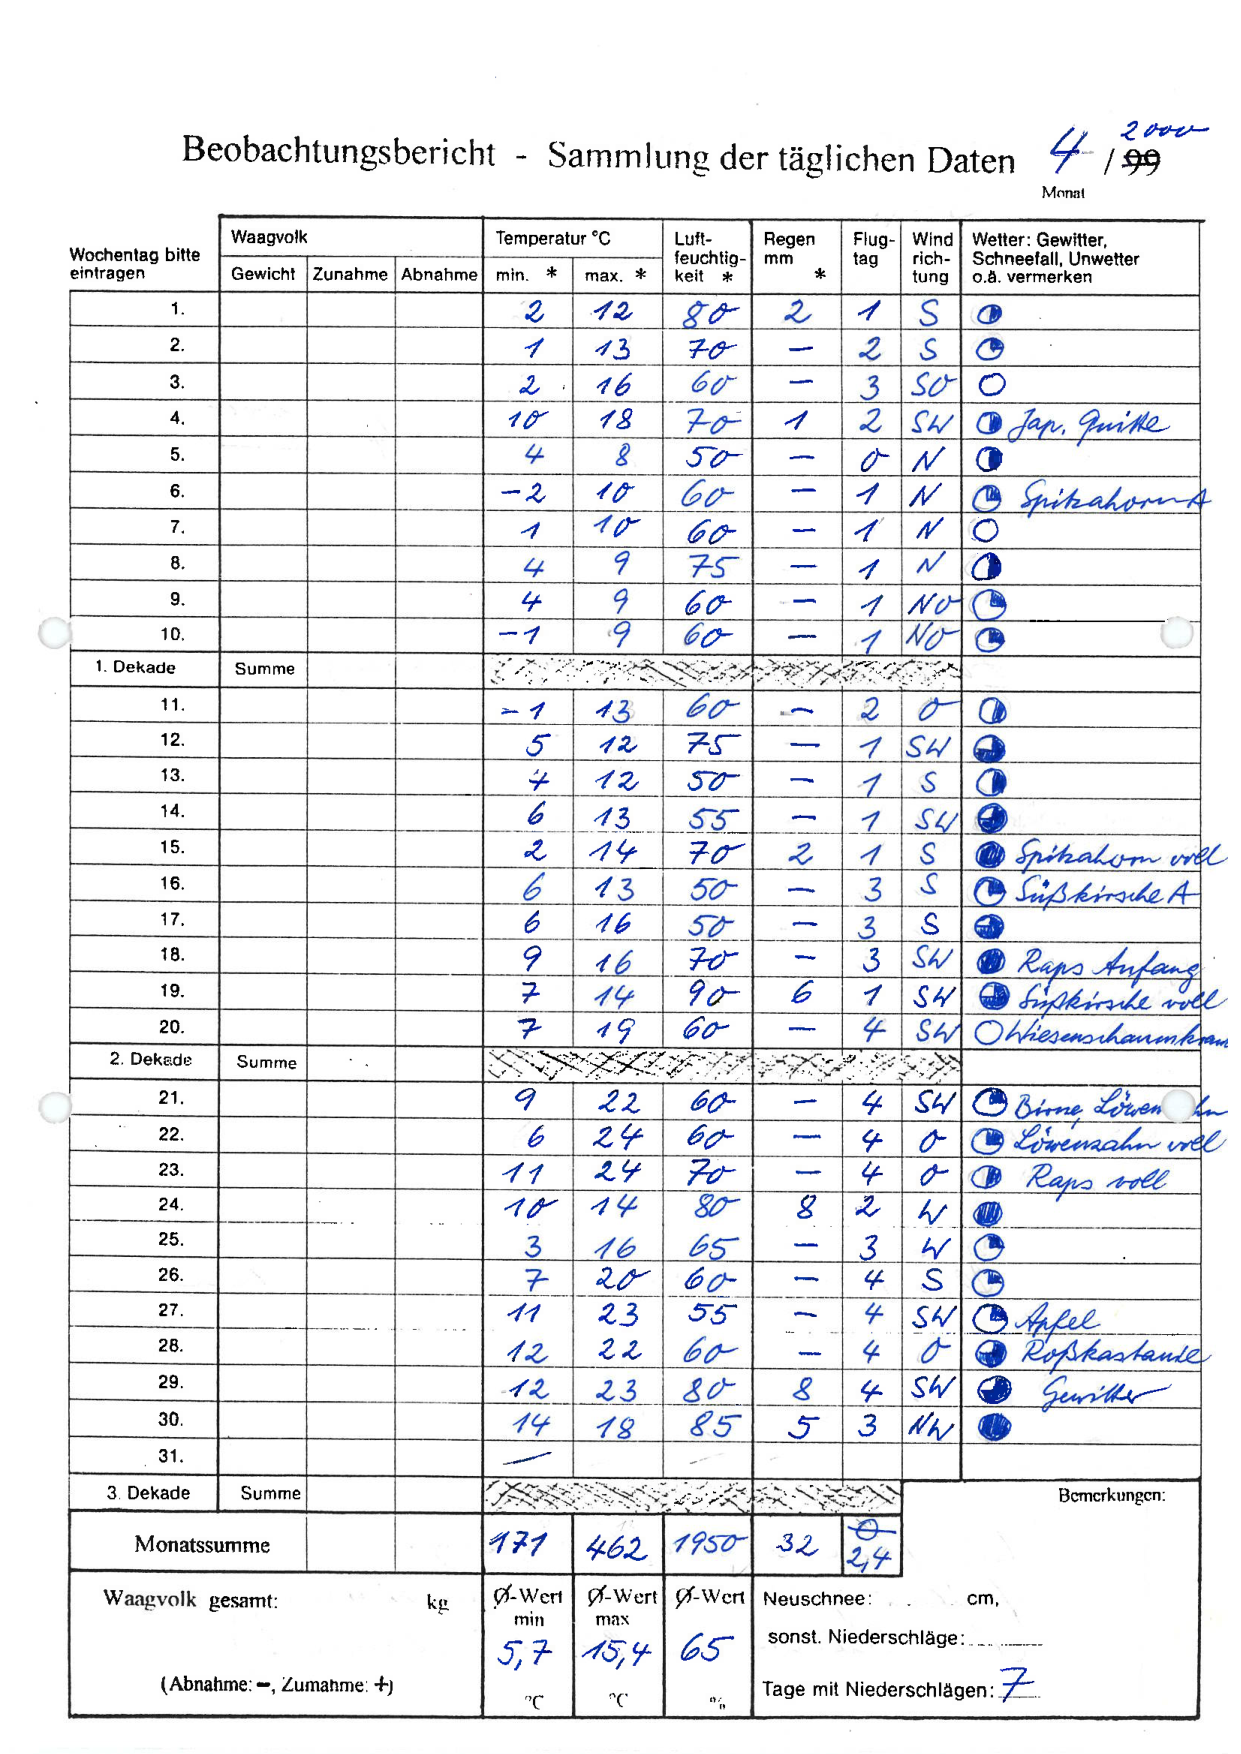 Beobachtungsbericht - Sammlung der täglichen Daten 4 / 99 2000
Monat
Wochentag bitte eintragen Waagvolk Temperatur °C Luft-feuchtig-keit * Regen mm * Flug-tag Wind rich-tung Wetter: Gewitter, Schneefall, Unwetter o.ä. vermerken
Gewicht Zunahme Abnahme min. * max. *
1. 2 12 80 2 1 S
2. 1 13 70 — 2 S
3. 2 16 60 — 3 SO
4. 10 18 70 1 2 SW Jap. Quitte
5. 4 8 50 — 0 N
6. -2 10 60 — 1 N Spitzahorn A
7. 1 10 60 — 1 N
8. 4 9 75 — 1 N
9. 4 9 60 — 1 NO
10. -1 9 60 — 1 NO
1. Dekade Summe
11. -1 13 60 — 2 O
12. 5 12 75 — 1 SW
13. 4 12 50 — 1 S
14. 6 13 55 — 1 SW
15. 2 14 70 2 1 S Spitzahorn voll
16. 6 13 50 — 3 S Süßkirsche A
17. 6 16 50 — 3 S
18. 9 16 70 — 3 SW Raps Anfang
19. 7 14 90 6 1 SW Süßkirsche voll
20. 7 19 60 — 4 SW Wiesenschaumkrau
2. Dekade Summe
21. 9 22 60 — 4 SW Birne, Löwen hn
22. 6 24 60 — 4 O Löwenzahn voll
23. 11 24 70 — 4 O Raps voll
24. 10 14 80 8 2 W
25. 3 16 65 — 3 W
26. 7 20 60 — 4 S
27. 11 23 55 — 4 SW Apfel
28. 12 22 60 — 4 O Roßkastanie
29. 12 23 80 8 4 SW Gewitter
30. 14 18 85 5 3 NW
31. —
3. Dekade Summe Bemerkungen:
Monatssumme 171 462 1950 32 Ø 2,4
Waagvolk gesamt: kg Ø-Wert min Ø-Wert max Ø-Wert Neuschnee: cm,
5,7 15,4 65 sonst. Niederschläge:
(Abnahme: -, Zumahme: +) °C °C % Tage mit Niederschlägen: 7